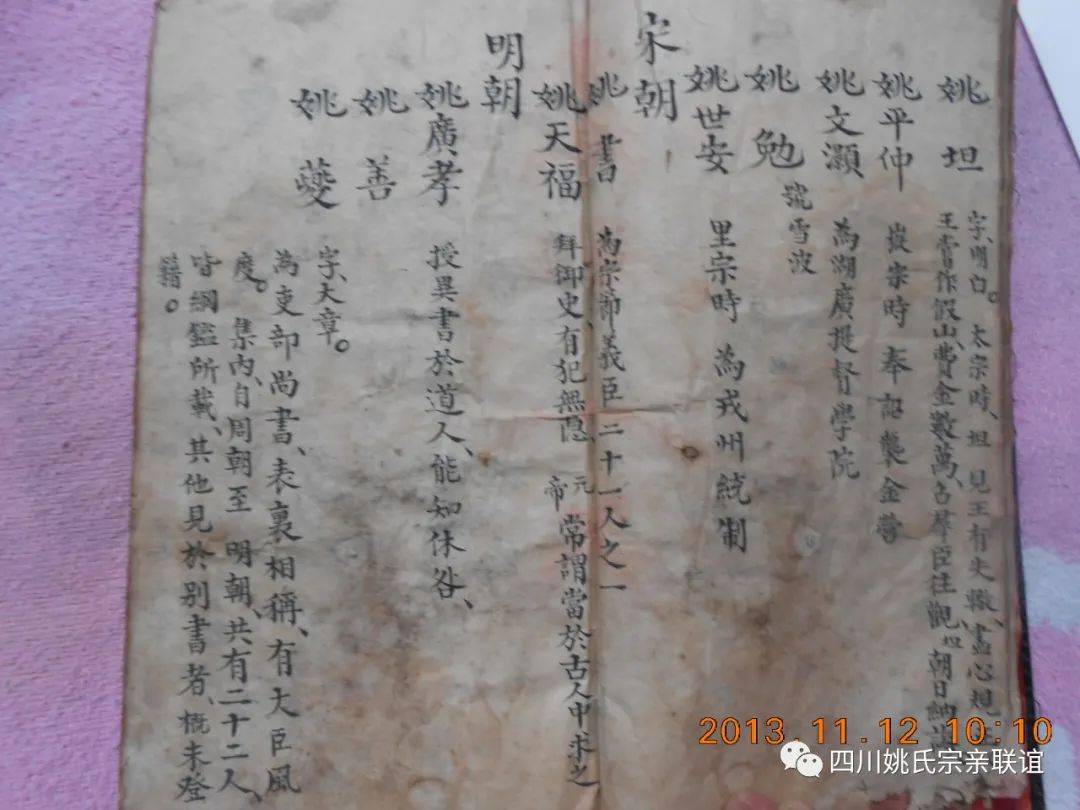 姚坦
字、明白。太宗時、坦見王有失輙、盡心規
王嘗作假山、費金數萬、召羣臣往觀、坦朝日納
姚平仲 嶶宗時 奉詔襲金營
姚文灝 為湖廣提督學院
姚勉 號雪波
姚世安 里宗時 為戎州統制
宋朝
姚書 為宗節義臣二十一人之一
姚天福 拜御史、有犯無隠、元帝常謂當於古人中求之
明朝
姚廣孝 授異書於道人、能知休咎、
姚善
姚夔 字、大章。
為吏部尚書、表裏相稱、有大臣風
度。集內、自周朝至 明朝、共有二十二人、
皆綱鑑所載、其他見於別書者、概未登
籍。
2013.11.12 10:10
四川姚氏宗亲联谊